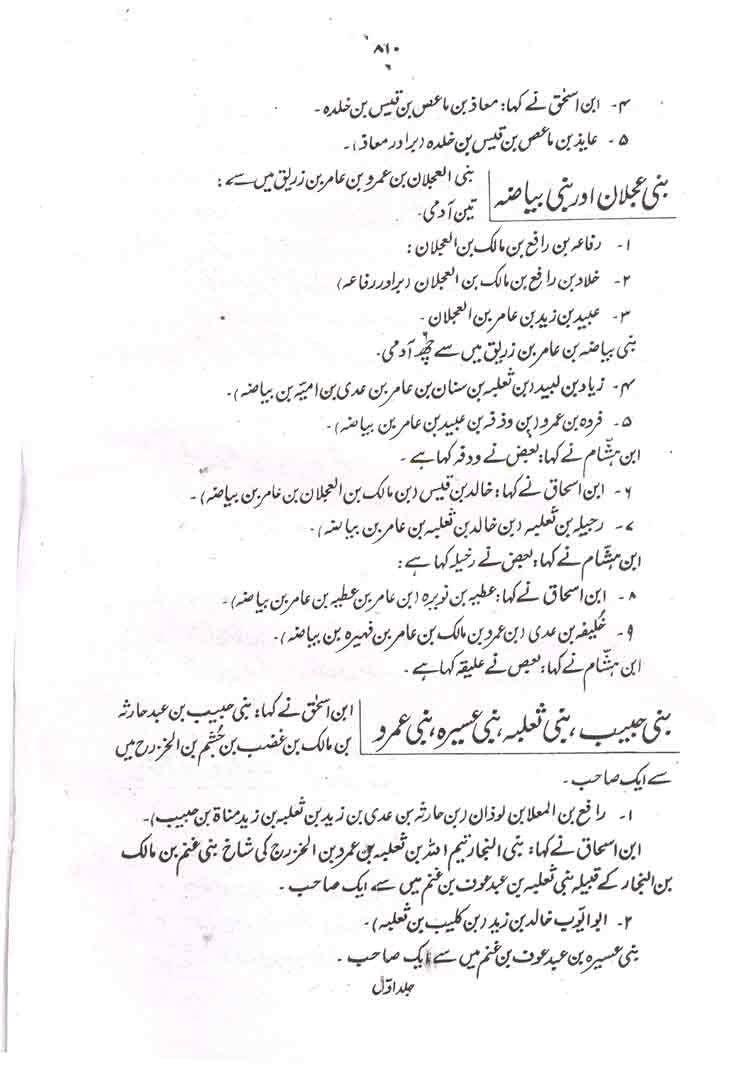 ۸۱۰
۴- ابن اسحٰق نے کہا: معاذ بن ماعص بن قیس بن خلدہ -
۵- عایذ بن ماعص بن قیس بن خلدہ (برادر معاذ)۔
بنی عجلان اور بنی بیاضہ
بنی العجلان بن عمرو بن عامر بن زریق میں سے:
تین آدمی -
۱- رفاعہ بن رافع بن مالک بن العجلان:
۲- خلاد بن رافع بن مالک بن العجلان (برادر رفاعہ)
۳- عبید بن زید بن عامر بن العجلان -
بنی بیاضہ بن عامر بن زریق میں سے چھ آدمی۔
۴- زیاد بن لبید (بن ثعلبہ بن سنان بن عامر بن عدی بن امیّہ بن بیاضہ)۔
۵- فردہ بن عمرو (بن وذفہ بن عبید بن عامر بن بیاضہ)۔
ابن ہشّام نے کہا: بعض نے ودفہ کہا ہے -
۶- ابن اسحاق نے کہا: خالد بن قیس (بن مالک بن العجلان بن عامر بن بیاضہ)۔
۷- رجیلہ بن ثعلبہ (بن خالد بن ثعلبہ بن عامر بن بیاضہ)۔
ابن ہشّام نے کہا: بعض نے رخیلہ کہا ہے:
۸- ابن اسحاق نے کہا: عطیہ بن نویرہ (بن عامر بن عطیہ بن عامر بن بیاضہ)۔
۹- خُلیفہ بن عدی (بن عمرو بن مالک بن عامر بن فہیرہ بن بیاضہ)۔
ابن ہشّام نے کہا: بعض نے علیقہ کہا ہے -
بنی حبیب، بنی ثعلبہ، بنی عسیرہ، بنی عمرو
ابن اسحٰق نے کہا: بنی حبیب بن عبد حارثہ
بن مالک بن غضب بن جُشَم بن الخزرج میں
سے ایک صاحب -
۱- رافع بن المعلا بن لوذان (بن حارثہ بن عدی بن زید بن ثعلبہ بن زید مناۃ بن حبیب)۔
ابن اسحاق نے کہا: بنی النجار تیم اللہ بن ثعلبہ بن عمرو بن الخزرج کی شاخ بنی غنم بن مالک
بن النجار کے قبیلہ بنی ثعلبہ بن عبد عوف بن غنم میں سے ایک صاحب -
۲- ابو ایّوب خالد بن زید (بن کلیب بن ثعلبہ)۔
بنی عسیرہ بن عبد عوف بن غنم میں سے ایک صاحب -
جلد اوّل